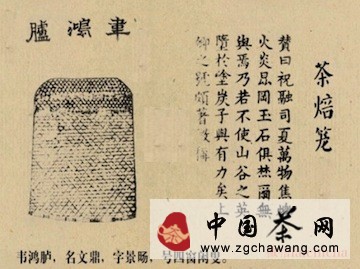 茶焙笼
贊曰祝融司夏萬物焦爍
火炎昆岡玉石俱焚爾無
與焉乃若不使山谷之英
墮於塗炭子與有力矣上
卿之號頗著微稱
韋鴻臚
中国茶网
www.zgchawang.com
韦鸿胪，名文鼎，字景旸，号四窗闲叟。